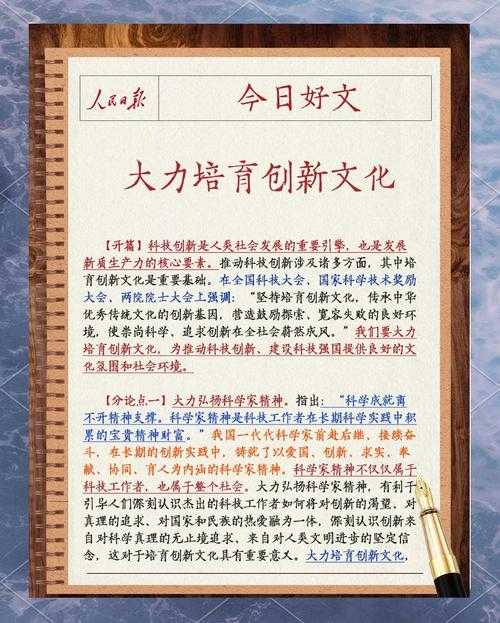 人民日报
今日好文
大力培育创新文化
【开篇】科技创新是人类社会发展的重要引擎，也是发展
新质生产力的核心要素。推动科技创新涉及诸多方面，其中培
育创新文化是重要基础。在全国科技大会、国家科学技术奖励
大会、两院院士大会上强调：“坚持培育创新文化，传承中华
优秀传统文化的创新基因，营造鼓励探索、宽容失败的良好环
境，使崇尚科学、追求创新在全社会蔚然成风。”我们要大力
培育创新文化，为推动科技创新、建设科技强国提供良好的文
化氛围和社会环境。
【分论点一】大力弘扬科学家精神。指出：“科学成就离
不开精神支撑。科学家精神是科技工作者在长期科学实践中积
累的宝贵精神财富。”我国一代代科学家前赴后继、接续奋
斗，在长期的创新实践中，铸就了以爱国、创新、求实、奉
献、协同、育人为内涵的科学家精神。科学家精神不仅仅属于
科技工作者，也属于整个社会。大力弘扬科学家精神，有利于
引导人们深刻认识杰出的科技工作者如何将对创新的渴望、对
真理的追求、对国家和民族的热爱融为一体，深刻认识创新来
自对科学真理的无止境追求、来自对人类文明进步的坚定信
念，这对于培育创新文化具有重要意义。大力培育创新文化，